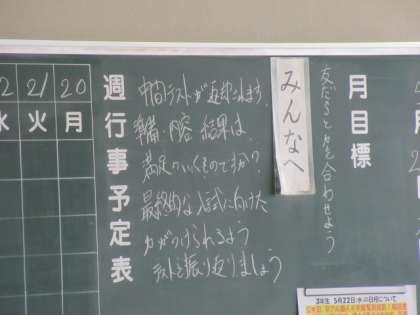 月目標
友だちと力を合わせよう
みんなへ
中間テストが返却されます。
準備、内容、結果は、
満足のいくものですか？
最終的な入試に向けた
力がつけられるよう
テストを振り返りましょう
週行事予定表
20
月
21
火
22
水
3年生 5月22日(水)の日程について